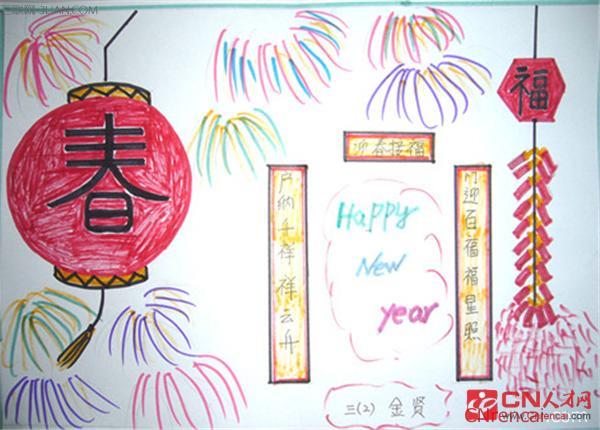 春
福
迎春接福
户纳千祥祥云升
门迎百福福星照
Happy
New
year
三(2) 金贤
CN人才网
CNrencai.com